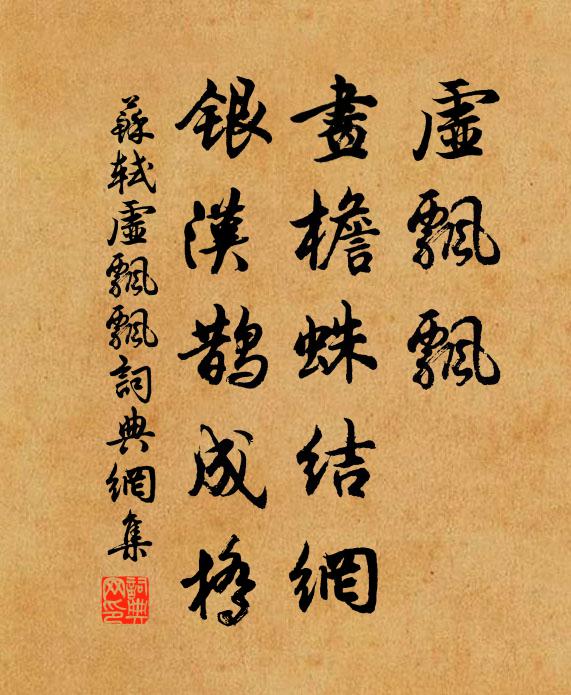 虛飄飄
畫檐蛛結網
銀漢鵲成橋
蘇軾虛飄飄詞典網集
詞典網印